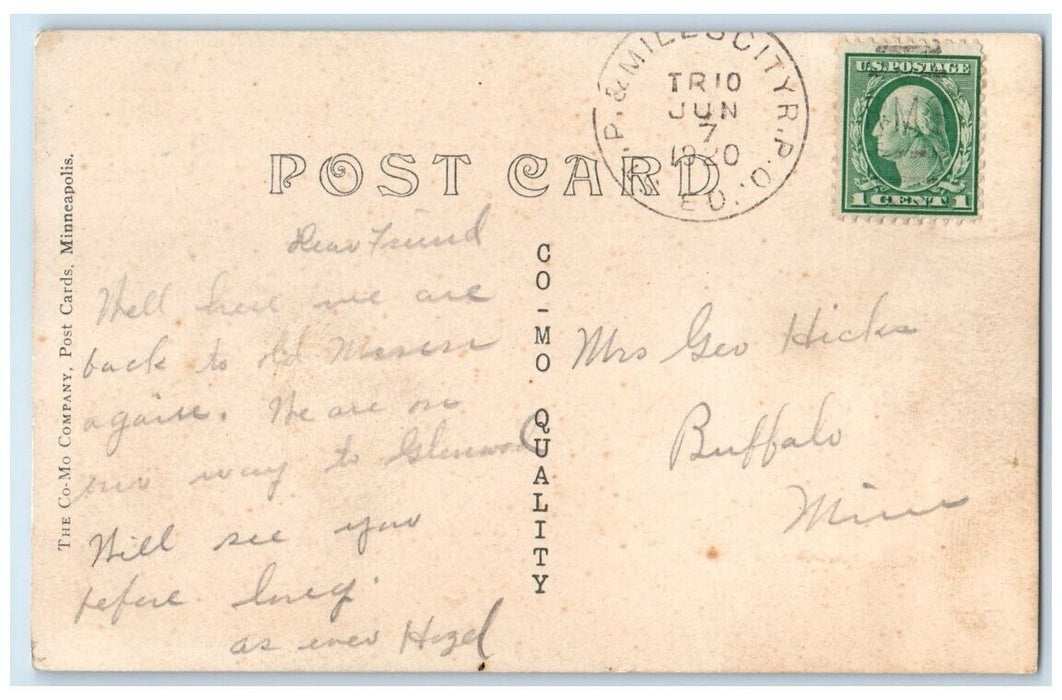 P. & MILES CITY R.P.O.
TR10
JUN
7
1920
E.D.
U.S. POSTAGE
1 CENT 1
POST CARD
THE CO-MO COMPANY, Post Cards, Minneapolis.
CO-MO QUALITY
Dear Friend
Well here we are
back to old
again. We are on
our way to Glenwood
Will see you
before long.
as ever Hazel
Mrs Geo Hicks
Buffalo
Minn